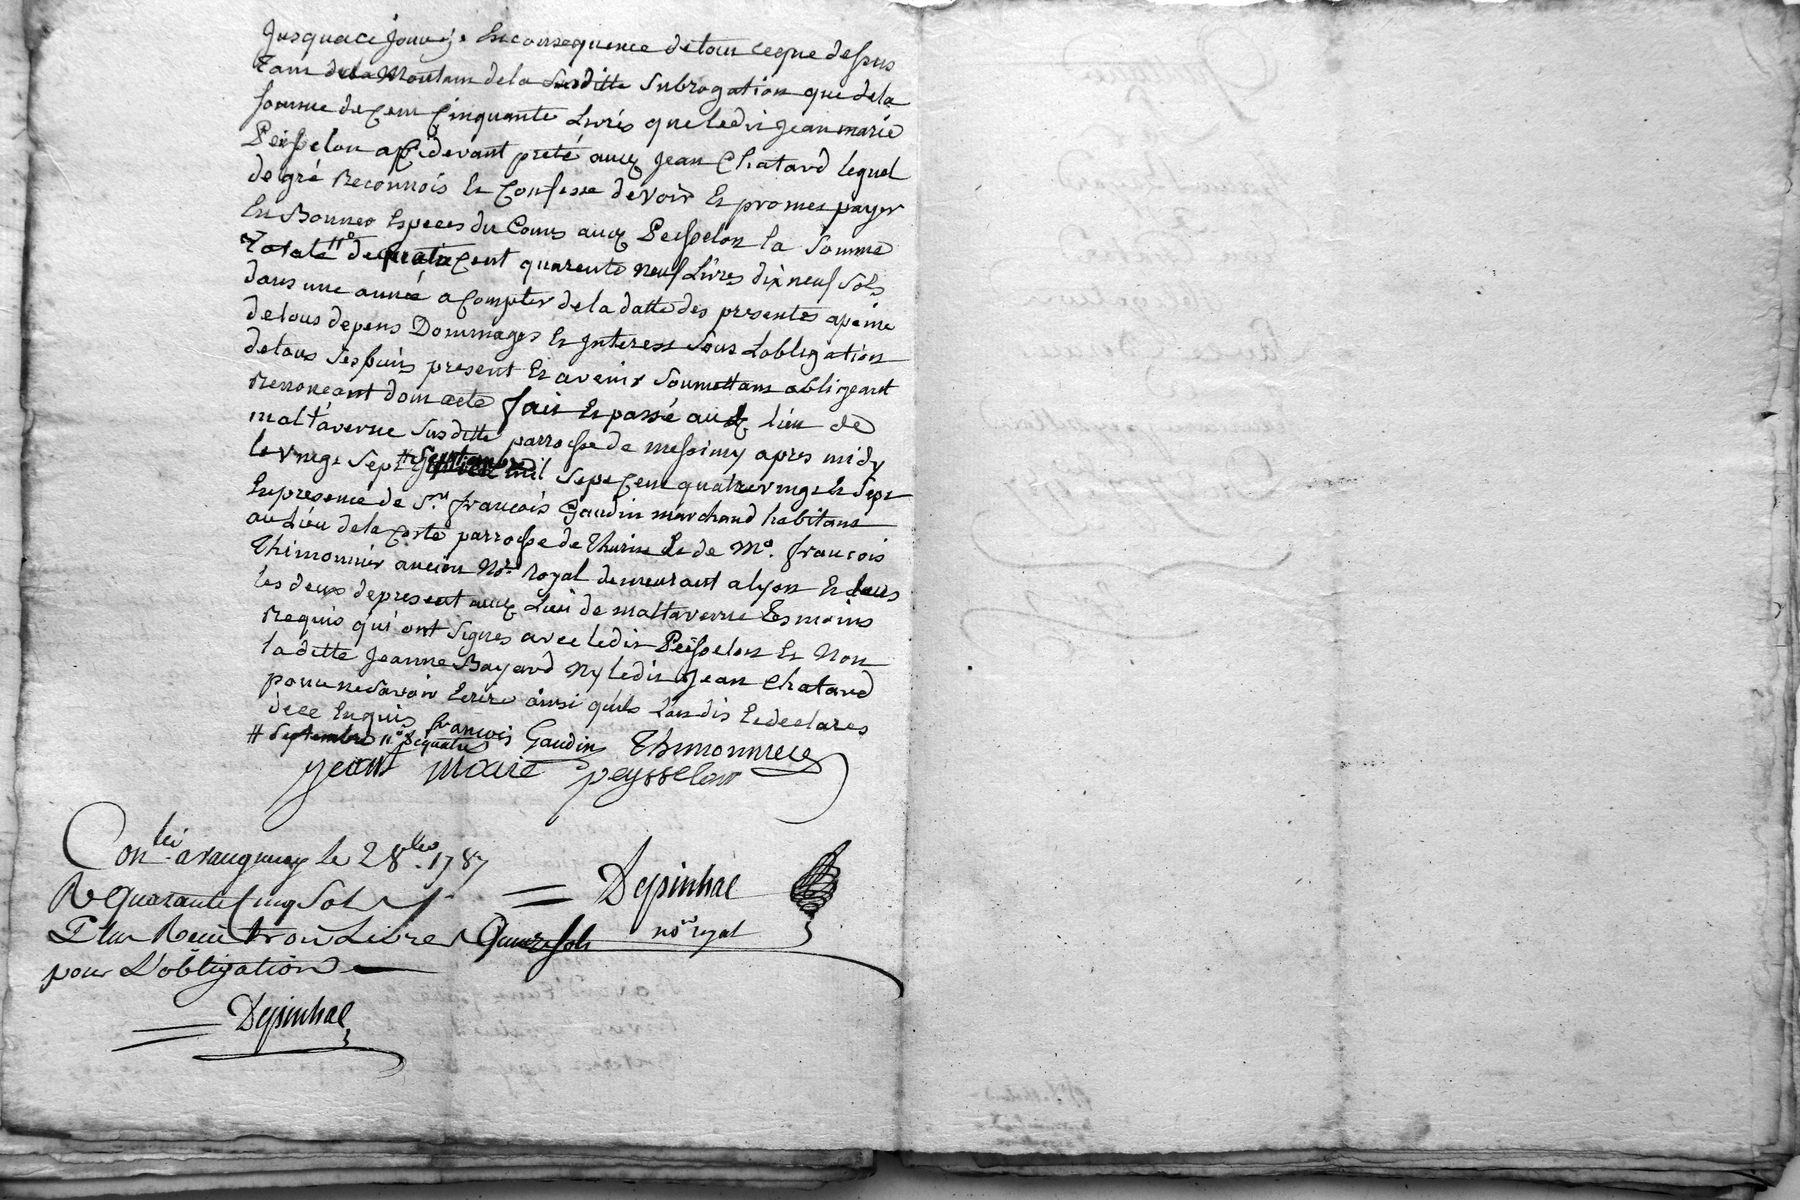 Jusquaci jour, Enconsequence detout ceque dessus
Tant dela Montant dela Susditte Subrogation que dela
somme de Cent Cinquante Livres que ledit Jean marie
Peisselon a Cidevant preté aud Jean Chatard lequel
degré Reconnois Et Confesse devoir Et promet payer
En Bonnes Especes du Cours aud Peisselon la Somme
Totale # de quatre Cent quarente neuf Livres dix neuf Sols
dans une année a Compter dela datte des presentes apeine
detous depens Dommages Et Interest Sous Lobligation
detous Ses biens present Et avenir Soumettant obligeant
Renonceant dont acte fait Et passé aud lieu de
maltaverne Susditte parroisse de messimy apres midy
le vingt Sept # Septembre mil Sept Cent quatrevingt Et Sept
Enpresence de Sr. francois Gaudin marchand habitant
au Lieu dela Coste parroisse de Thurins Et de Me. francois
Thimonnier ancien Nre. Royal demeurant alyon Et tous
les deux depresent aud Lieu de maltaverne Tesmoins
Requis qui ont Signés avec ledit Peisselon Et Non
laditte Jeanne Bayard Ny ledit Jean Chatard
pour ne Savoir Ecrire ainsi quils Lont dis Et declarés
dece Enquis francois Gaudin Thimonnier
# Septembre # de quatre
jean marie peysselon
Conlé. a vaugneray le 2 8bre. 1787
R quarante Cinq Sols
Plus Recu trois Livres Quinze sols
pour L'obligation
Depinhac
Depinhac
nore royal